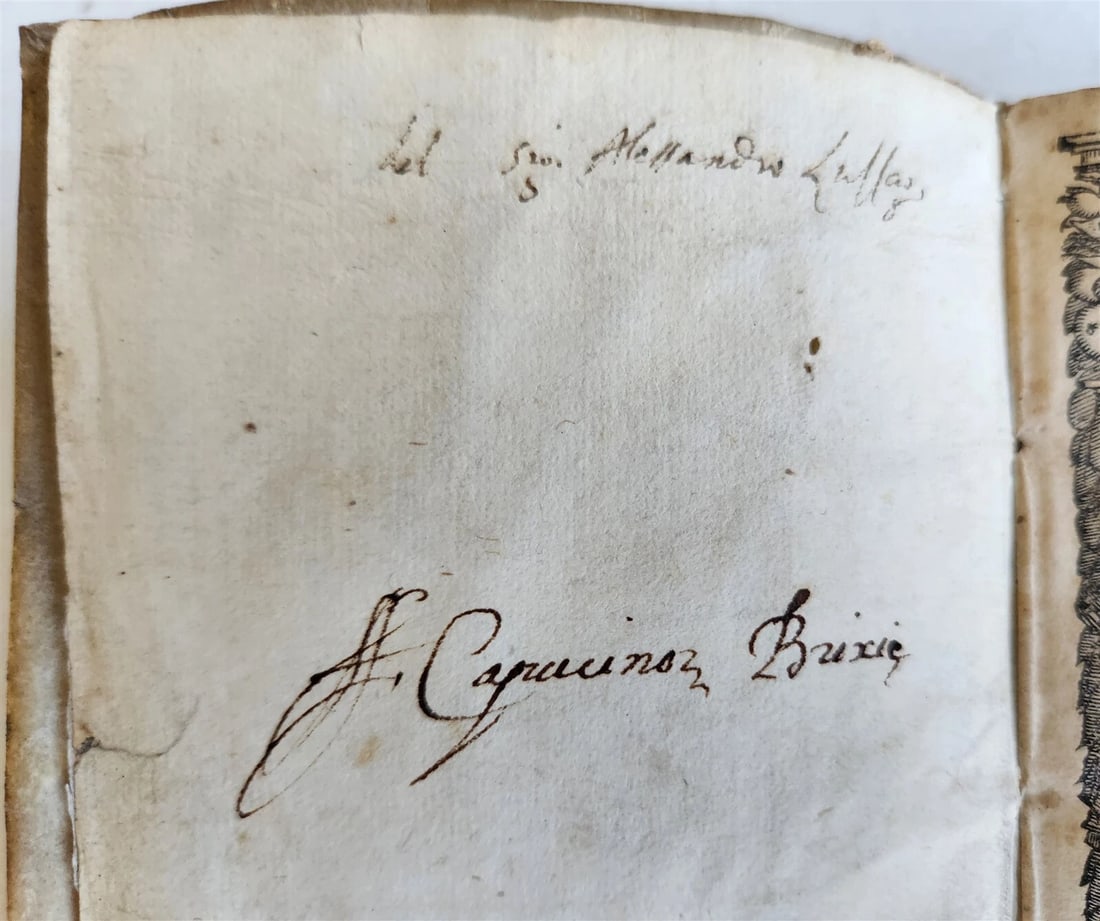 del sigr Alessandro Lussago
ff. Capucinor Brixię